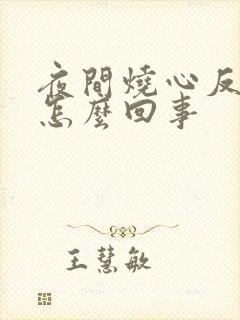 夜間燒心反
怎麼回事
王慧敏